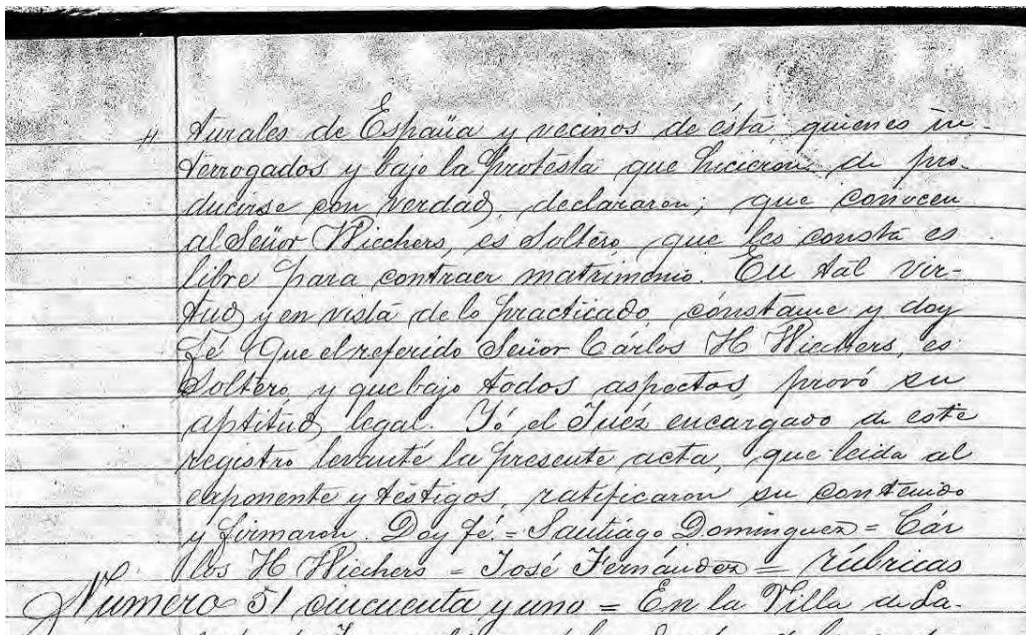 turales de España y vecinos de ésta quienes in-
terrogados y bajo la protesta que hicieron de pro-
ducirse con verdad, declararon; que conocen
al Señor Wiechers, es soltero que les consta es
libre para contraer matrimonio. En tal vir-
tud y en vista de lo practicado, cónstame y doy
fé Que el referido Señor Cárlos H Wiechers, es
Soltero, y que bajo todos aspectos, provó su
aptitud legal. Yó el Juéz encargado de este
registro levanté la presente acta, que leida al
exponente y testigos, ratificaron su contenido
y firmaron. Doy fé. = Santiágo Dominguez = Cár
los H Wiechers = José Fernández = rúbricas
Numero 51 cincuenta y uno = En la Villa de La-